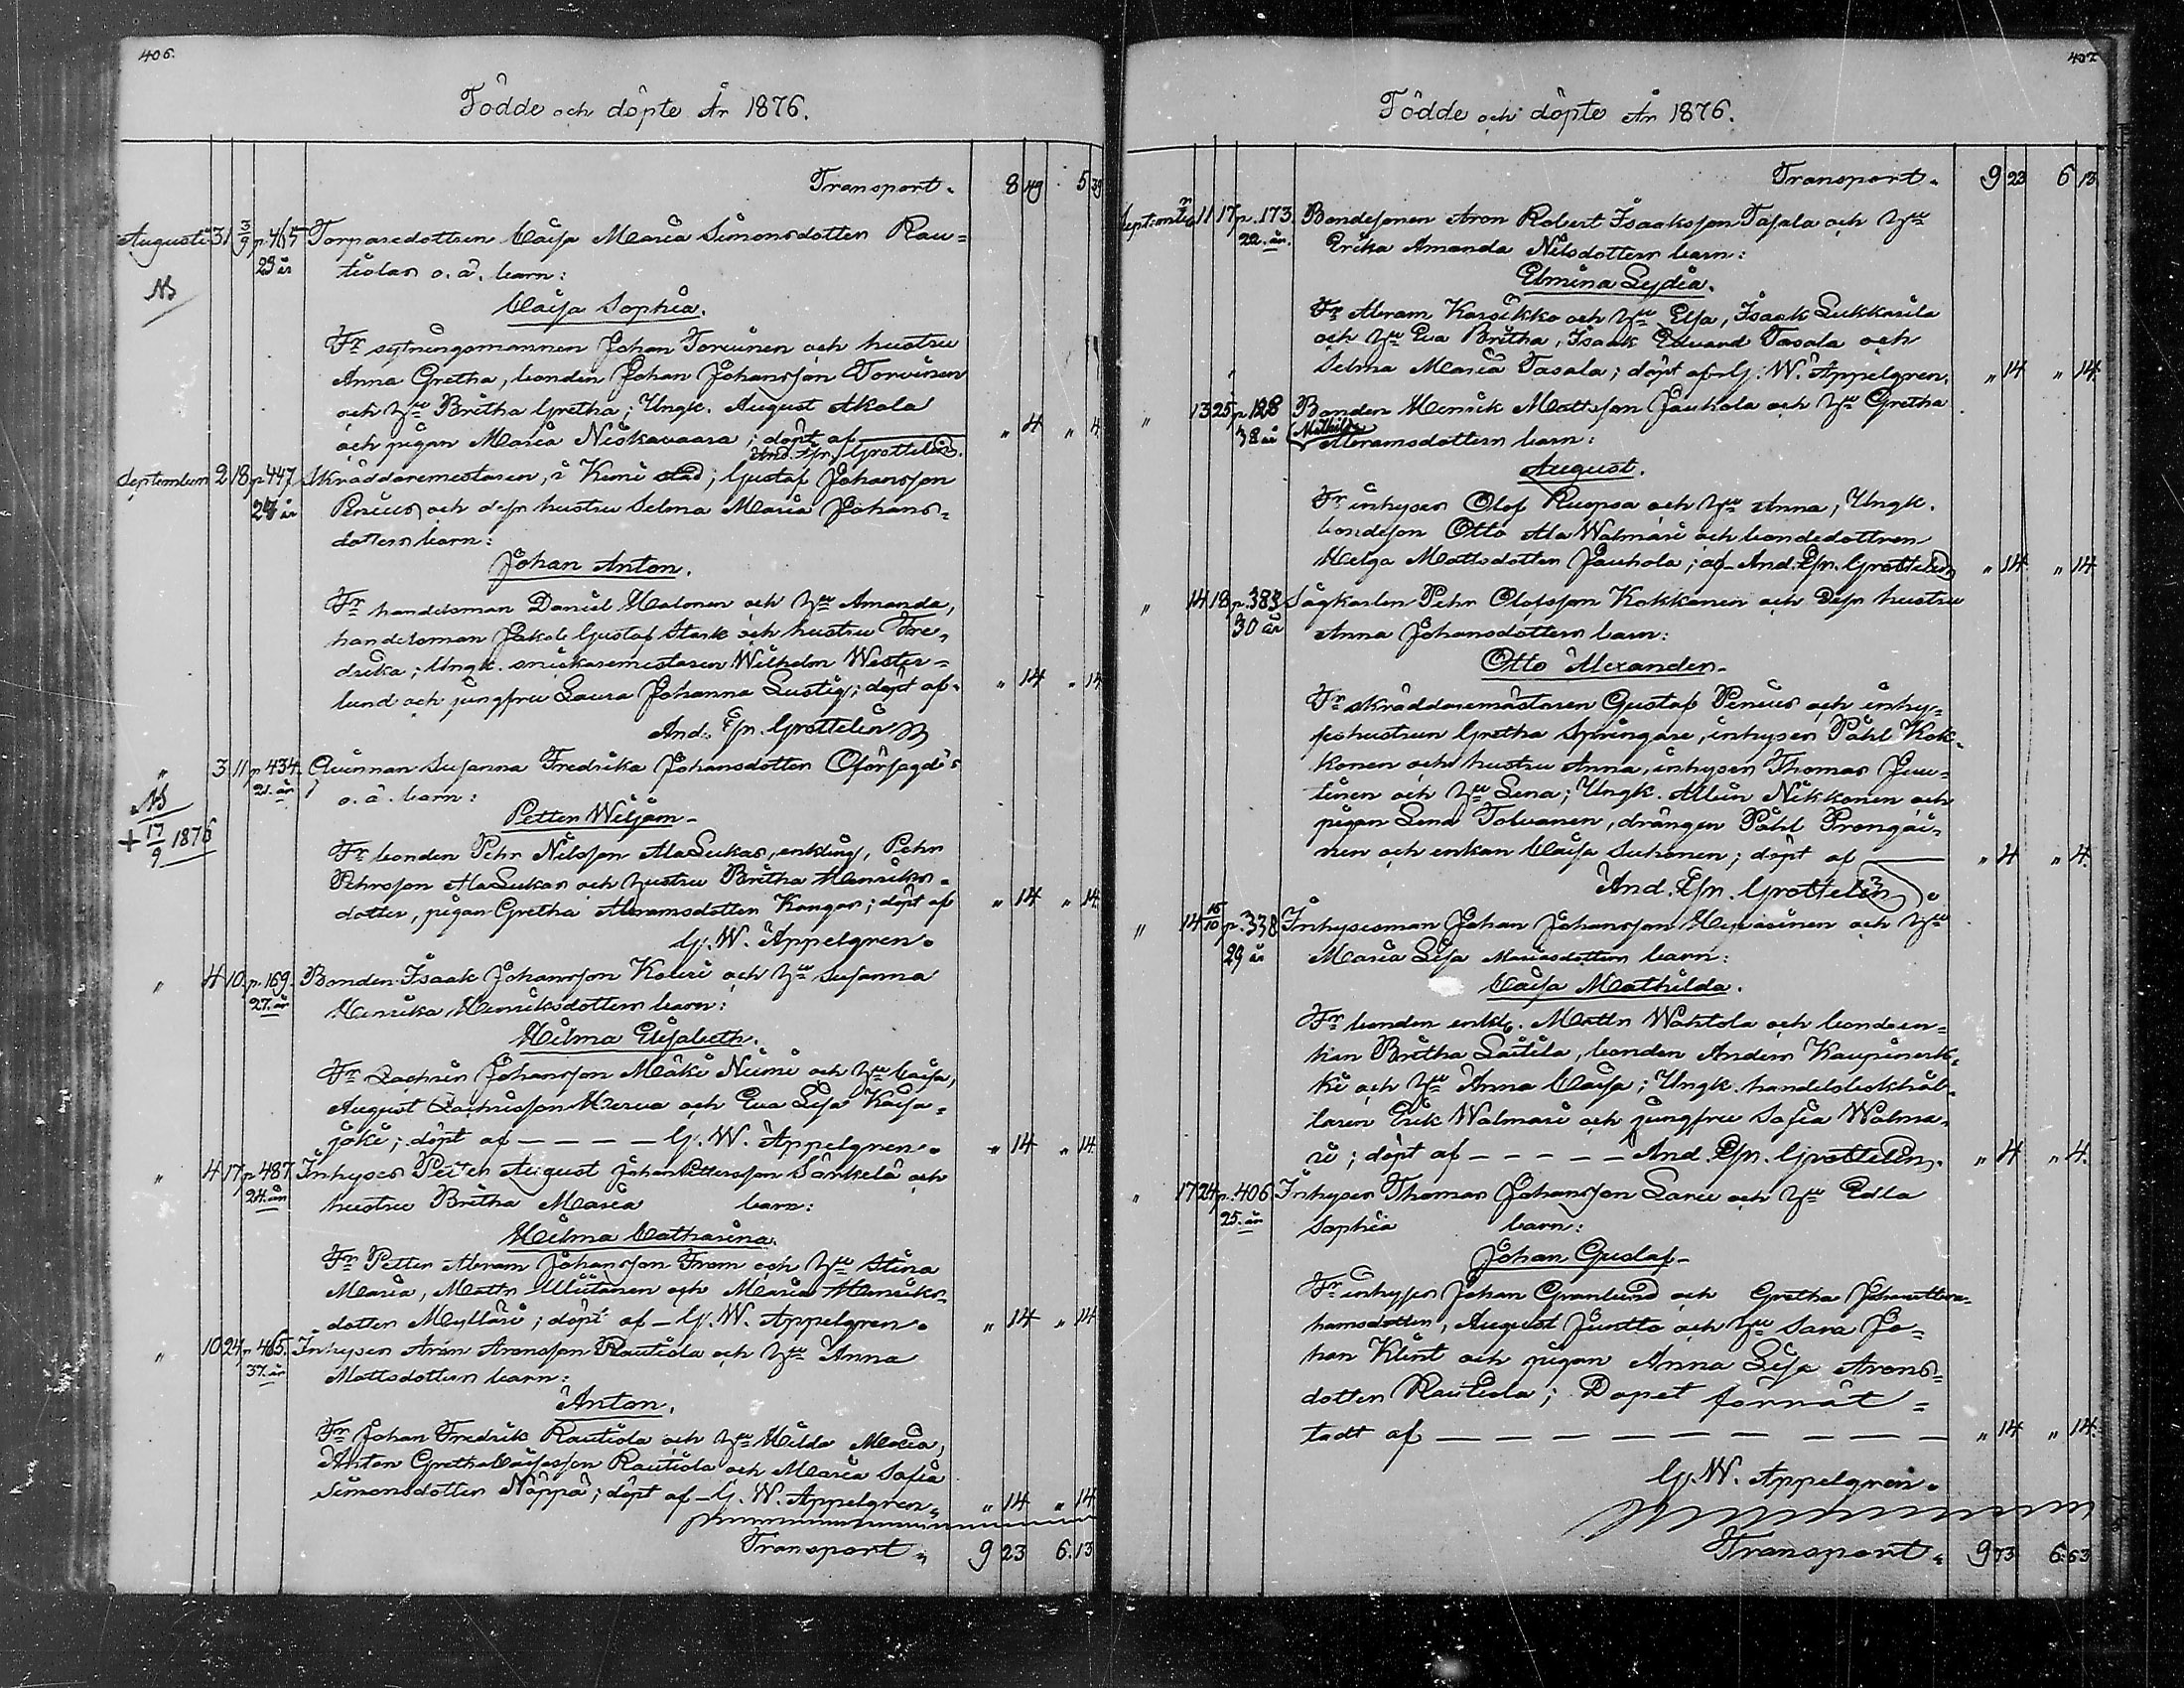 406.
Födde och döpte År 1876.
Transport. 8 49 5 39
Augusti 31 3/9 p. 465 Torparedottren Caisa Maria Simonsdotter Rau=
23 år tiolas o. ä. barn:
NB
Caisa Sophia.
Fr sytningsmannen Johan Torvinen och hustru
Anna Gretha, bonden Johan Johansson Torvinen
och Hu Britha Gretha; Ungk. August Akola
och pigan Maria Niskavaara; döpt af " 4 " 4.
And. Efr. Grottelin.
September 2 18 p 447 Skräddaremestaren, i Kemi stad, Gustaf Johansson
24 år Penius och dess hustru Selma Maria Johans=
dotters barn:
Johan Anton.
Fr handelsman Daniel Malonen och Hu Amanda,
handelsman Jakob Gustaf Stark och hustru Fre=
drika; Ungk. snickaremestaren Wilhelm Wester=
lund och jungfru Laura Johanna Lustig; döpt af " 14 " 14
And. Efr. Grottelin
" 3 11 p 434. Qvinnan Susanna Fredrika Johansdotter Oförsagd's
21. år o. ä. barn:
NB
Petter Wiljam
+ 17/9 1876
Fr bonden Pehr Nilsson AlaLukas, enkling, Pehr
Pehrsson AlaLukas och hustru Britha Henriks=
dotter, pigan Gretha Abramsdotter Kangas; döpt af " 14 " 14.
G. W. Appelgren.
" 4 10 p. 169. Bonden Isaak Johansson Koluri och Hu Susanna
27. år Henrika Henriksdotters barn:
Hilma Elisabeth.
Fr Zachris Johansson Mäki Niemi och Hu Caisa,
August Zachrisson Merva och Eva Lisa Kaisa=
joki; döpt af — — — — G. W. Appelgren. " 14 " 14.
" 4 17 p 487. Inhyses Petter August Johan Pettersson Särkelä och
24. år hustru Britha Maria barn:
Hilma Catharina.
Fr Petter Abram Johansson From och Hu Stina
Maria, Matts Miutanen och Maria Henriks=
dotter Mylläri; döpt af — G. W. Appelgren. " 14 " 14
" 10 24 p 465. Inhyses Aron Aronsson Rautiola och Hu Anna
37. år Mattsdotters barn:
Anton.
Fr Johan Fredrik Rautiola och Hu Hilda Maria,
Anton GrethaCaisasson Rautiola och Maria Sofia
Simonsdotter Näppä; döpt af — G. W. Appelgren. " 14 " 14
Transport. 9 23 6. 13
407
Födde och döpte År 1876.
Transport. 9 23 6 13
September 11 17 p. 173. Bondesonen Aron Robert Isaksson Tasala och Hu
22. år. Erika Amanda Nilsdotters barn:
Elmina Lydia.
Fr Abram Karsikko och Hu Elsa, Isaak Lukkarila
och Hu Eva Britha, Isaak Edvard Tasala och
Selma Maria Tasala; döpt af G. W. Appelgren. " 14 " 14.
" 13 25 p. 128 Bonden Henrik Mattsson Jauhola och Hu Gretha
38 år Mathilda Abramsdotters barn:
August.
Fr inhyses Olof Ruopsa och Hu Anna, Ungk.
bondeson Otto AlaWalmari och bondedottren
Helga Mattsdotter Jauhola; af And. Efr. Grottelin " 14 " 14
" 14 18 p. 383 Sågkarlen Pehr Olofsson Kokkonen och dess hustru
30 år Anna Johansdotters barn:
Otto Alexander.
Fr skräddaremästaren Gustaf Penius och inhy=
seshustrun Gretha Springare, inhyses Påhl Kok=
konen och hustru Anna, inhyses Thomas Juu=
tinen och Hu Lena; Ungk. Albin Nikkonen och
pigan Lena Tolvanen, drängen Påhl Prongäi=
nen och enkan Caisa Suhonen; döpt af " 4 " 4.
And. Efr. Grottelin.
" 14 15/10 p. 338 Inhysesman Johan Johansson Heikkinen och Hu
29 år Maria Lisa Mariasdotters barn:
Caisa Mathilda.
Fr bonden enkl. Matts Wahtola och bondeen=
kan Britha Laitila, bonden Anders Kaupinerk=
ki och Hu Anna Caisa; Ungk. handelsbokhål=
laren Erik Walmari och jungfru Sofia Walma=
ri; döpt af — — — — — And. Efr. Grottelin. " 4 " 4.
" 17 24 p. 406. Inhyses Thomas Johansson Laru och Hu Edla
25. år Sophia barn:
Johan Gustaf
Fr inhyses Johan Granlund och Gretha
hamsdotter, August Juntto och Hu Sara Jo=
han Klint och pigan Anna Lisa Arons=
dotter Rautiola; Dopet förrät=
tadt af — — — — — — — — " 14 " 14.
G. W. Appelgren.
Transport. 9 73 6. 63